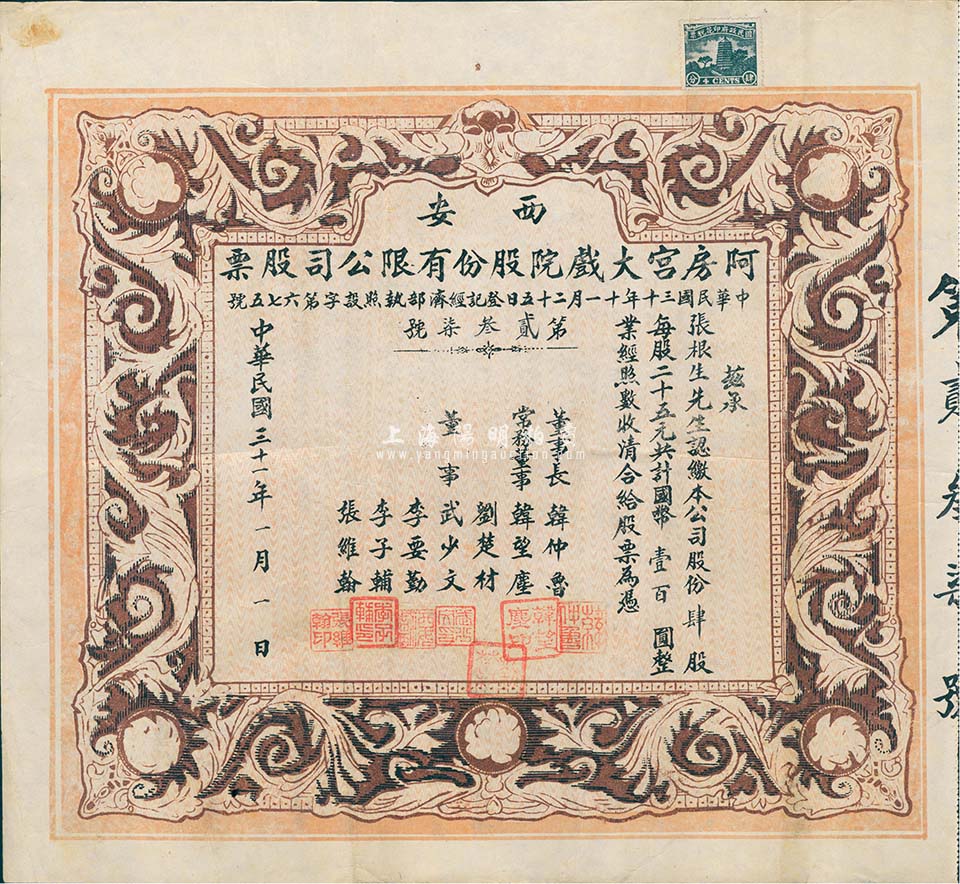 國民政府印花稅票
分 4 CENTS 肆
西安
阿房宮大戲院股份有限公司股票
中華民國三十年十一月二十五日登記經濟部執照設字第六七五號
第貳叁柒號
茲承
張根生先生認繳本公司股份肆股
每股二十五元共計國幣壹百圓整
業經照數收清合給股票為憑
董事長 韓仲魯
常務董事 韓望塵
劉楚材
董事 武少文
李要勤
李子輔
張維翰
中華民國三十一年一月一日
上海陽明拍賣
www.yangmingauction.com